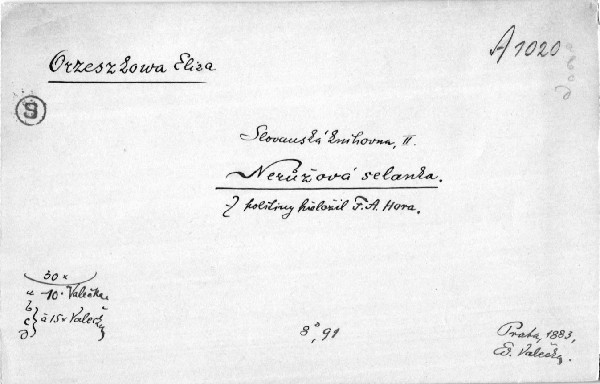 Orzeszkowa Eliza
A 1020
a
b
c
d
S
Slovanská knihovna, II.
Nerůžová selanka.
Z polštiny přeložil F. A. Hora.
30 ×
a 10. Valečka
b
c à 15 × Valečky
d
8°, 91
Praha, 1883,
Ed. Valečka.